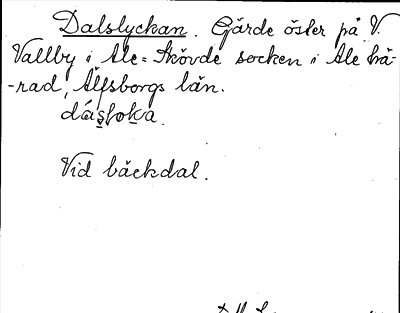 Dalslyckan. Gärde öster på V.
Vallby i Ale-Skövde socken i Ale hä-
-rad, Älfsborgs län.
Vid bäckdal.